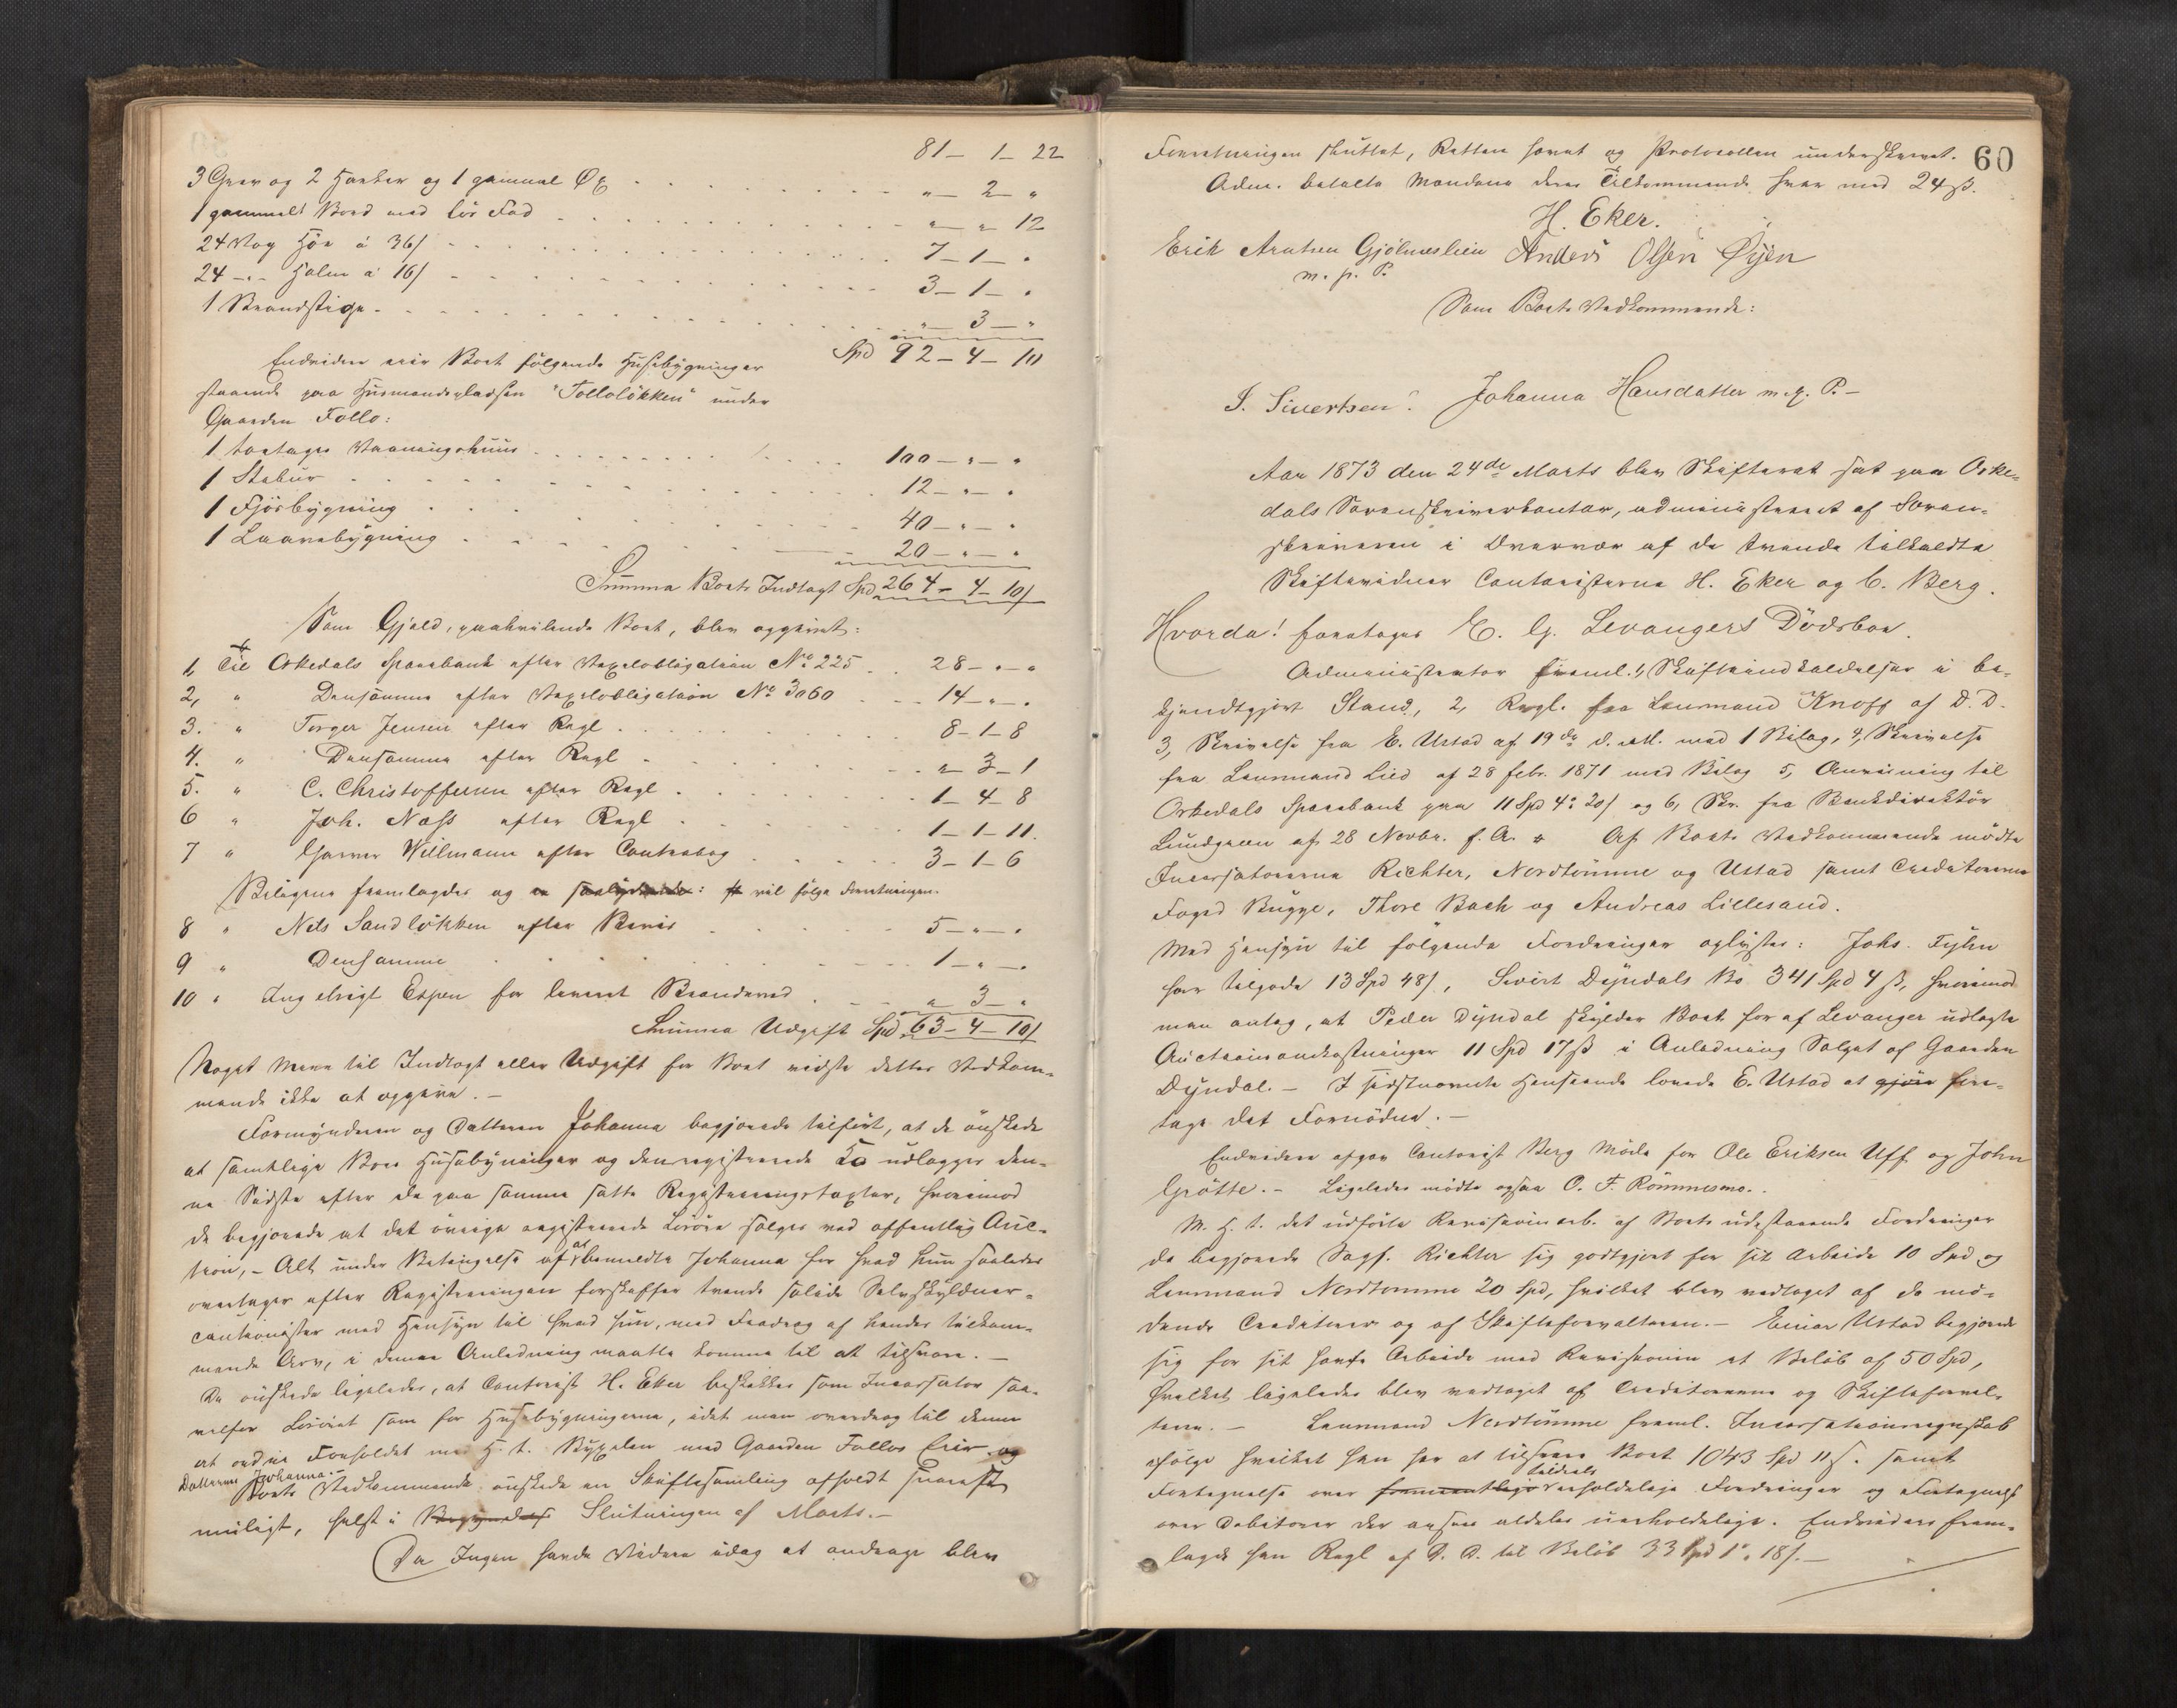 81 - 1 - 22
3 Grev og 2 Hakker og 1 gammel Øx . . . " - 2 - "
1 gammelt Bord med lös Fod . . . " - " 12
24 Vog Høe á 36 s . . . 7 - 1 - "
24 -"- Halm á 16 s . . . 3 - 1 - "
1 Brandstige . . . " - 3 - "
Spd 92 - 4 - 10
Endvidere eier Boet følgende Husebygninger
staaende paa Husmandspladsen "Folloløkken" under
Gaarden Follo:
1 toetages Vaaningshuus . . . 100 - " - "
1 Stabur . . . 12 - " - "
1 Fjösbygning . . . 40 - " - "
1 Laavebygning . . . 20 - " - "
Summa Boets Indtægt Spd 264 - 4 - 10 s
Som Gjæld, paahvilende Boet, blev opgivet:
1, Til Orkedals Sparebank efter Vexelobligation No 225 . . 28 - " - "
2, " Densamme efter Vexelobligation No 3060 . . . 14 - " - "
3. " Torger Jensen efter Regl . . . 8 - 1 - 8
4. " Densamme efter Regl . . . " - 3 - 1
5. " C. Christoffersen efter Regl . . . 1 - 4 - 8
6 " Joh. Næss efter Regl . . . 1 - 1 - 11.
7 " Garver Willmann efter Contrabog . . . 3 - 1 - 6
Bilagene fremlagdes og vil følge Forretningen.
8 " Nils Sandløkken efter Beviis . . . 5 - " - "
9 " Densamme . . . 1 - " - "
10 " Ingebrigt Espen for leveret Brændeved . . . " - 3 - "
Summa Udgift Spd 63 - 4 - 10 s
Noget Mere til Indtægt eller Udgift for Boet vidste dettes Vedkom-
mende ikke at opgive. -
Formynderen og Datteren Johanna begjærede tilført, at de ønskede
at samtlige Boets Husebygninger og den registrerede Ko udlægges den-
ne Sidste efter de paa samme satte Registreringstaxter, hvorimod
de begjærede at det øvrige registrerede Løsøre sælges ved offentlig Auc-
tion, - Alt under Betingelse af at bemeldte Johanna for hvad hun saaledes
overtager efter Registreringen forskaffer tvende solide Selvskyldner-
cautionister med Hensyn til hvad hun, med Fradrag af hendes tilkom-
mende Arv, i denne Anledning maatte komme til at tilsvare. -
De ønskede ligeledes, at Contorist H. Eker beskikkes som Incassator saa-
velfor Løsøret som for Husebygningerne, idet man overdrog til denne
at ordne Forholdet med H. t. Bygslen med Gaarden Follos Eier og
Datteren Johanna. -
Boets Vedkommende ønskede en Skiftesamling afholdt snarest
muligt, helst i Begyndelsen Slutningen af Marts. -
Da Ingen havde Videre idag at andrage blev
60
Forretningen sluttet, Retten hævet og Protocollen underskrevet.
Adm. betalte Mændene deres Tilkommende hver med 24 ß.
H. Eker.
Erik Arntsen Gjølmeslien Anders Olsen Øyen
m. p. P.
Som Boets Vedkommende:
I. Sivertsen. Johanna Hansdatter m. p. P. -
Aar 1873 den 24de Marts blev Skifteret sat paa Orke-
dals Sorenskriverkontor, administreret af Soren-
skriveren i Overvær af de tvende tilkaldte
Skiftevidner Contoristerne H. Eker og C. Berg.
Hvorda! foretoges E. G. Levangers Dödsboe.
Administrator freml. 1, Skifteindkaldelser i be-
kjendtgjort Stand, 2, Regl. fra Lensmand Knoff af D. D.
3, Skrivelse fra E. Ustad af 19de d. M. med 1 Bilag, 4, Skrivelse
fra Lensmand Lied af 28 febr. 1871 med Bilag 5, Anvisning til
Orkedals Sparebank paa 11 Spd 4 " 20 s og 6, Skr. fra Bankdirektør
Lundgreen af 28 Novbr. f. A. Af Boets Vedkommende mødte
Incassatorerne Richter, Nordtømme og Ustad samt Creditorerne
Foged Bugge, Thore Bach og Andreas Lillesand.
Med Hensyn til følgende Fordringer oplystes: Johs. Fyhn
har tilgode 13 Spd 48 s, Sivert Dyndals Bo 341 Spd 4 ß, hvorimod
man antog, at Peder Dyndal skylder Boet for af Levanger udlagte
Auctionsomkostninger 11 Spd 17 ß i Anledning Salget af Gaarden
Dyndal. - I sidstnævnte Henseende lovede E. Ustad at gjøre fore-
tage det Fornødne. -
Endvidere afgav Contorist Berg Møde for Ole Eriksen Uff og John
Grøtte. - Ligeledes mødte ogsaa O. F. Rømmesmo.
M. H. t. det udførte Revisionsarb. af Boets udestaaende Fordringer
da begjærede Sagf. Richter sig godtgjort for sit Arbeide 10 Spd og
Lensmand Nordtømme 20 Spd, hvilket blev vedtaget af de mö-
dende Creditorer og af Skifteforvalteren. - Einar Ustad begjærede
sig for sit havte Arbeide med Revisionen et Beløb af 50 Spd,
hvilket ligeledes blev vedtaget af Creditorerne og Skifteforval-
teren. - Lensmand Nordtømme freml. Incassationsregnskab
ifølge hvilket han har at tilsvare Boet 1043 Spd 11 s. samt
Fortegnelse over tildeels uerholdelige Fordringer og Fortegnelse
over Debitorer der ansees aldeles uerholdelige. Endvidere frem-
lagde han Regl af D. D. til Beløb 33 Spd 1 " 18 s. -